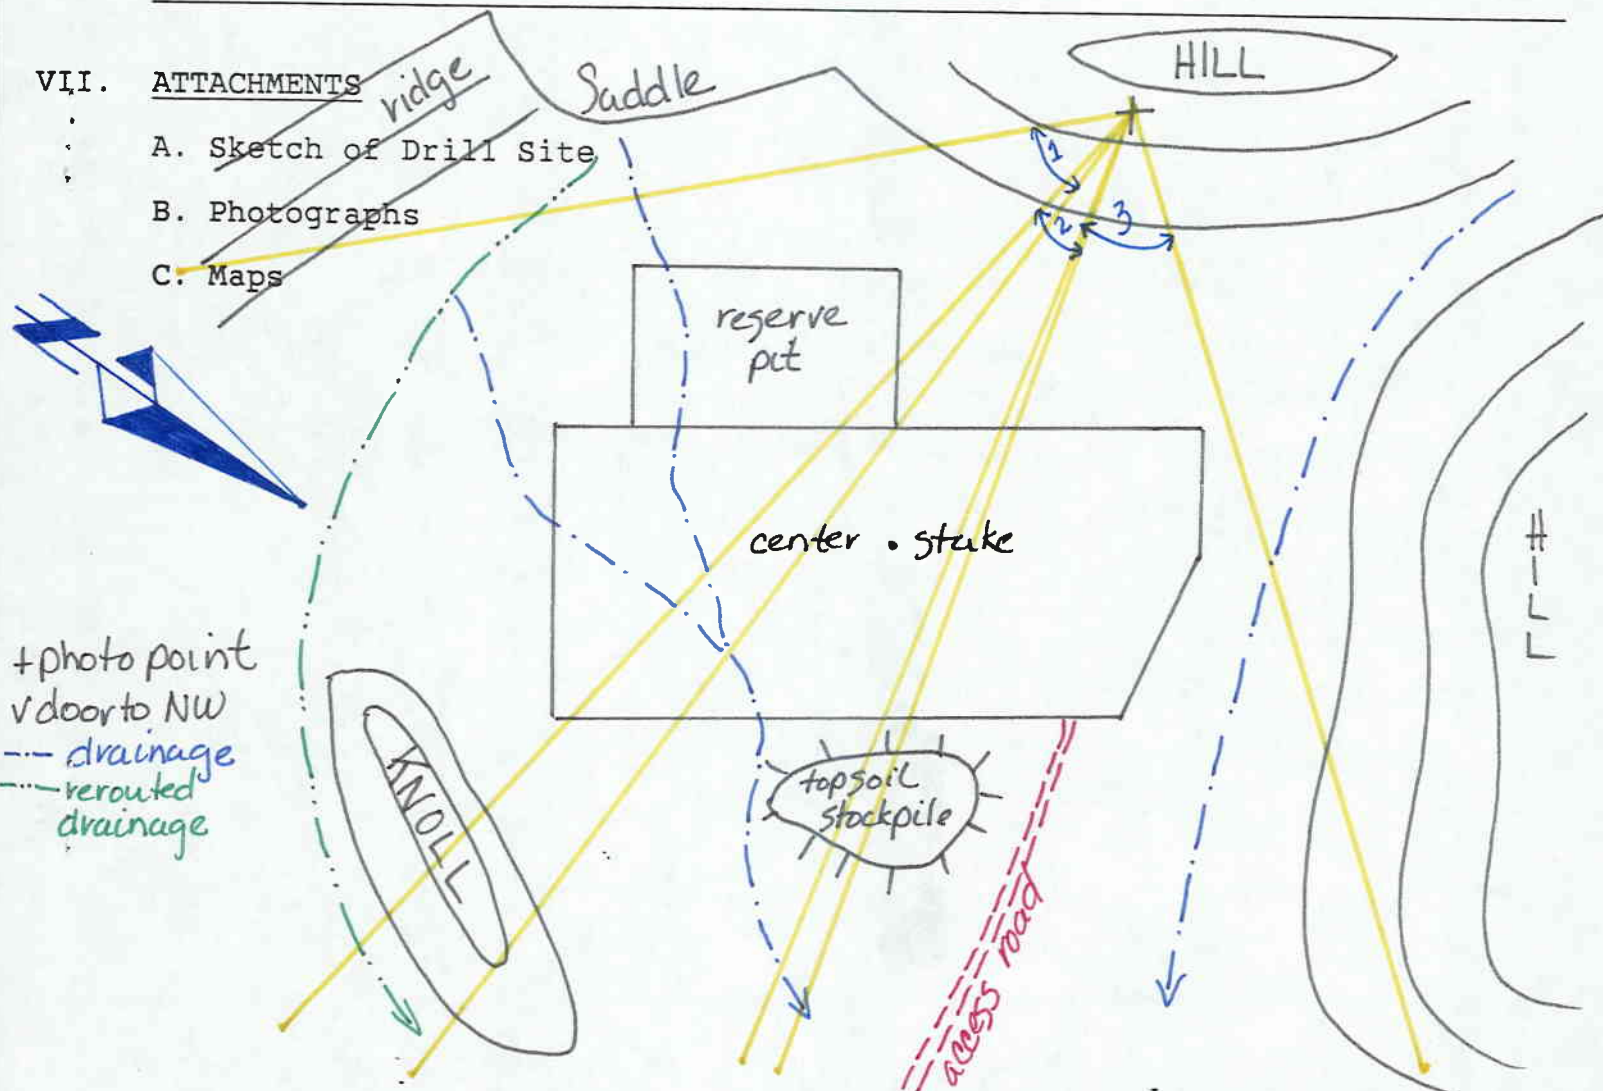 VII. ATTACHMENTS
A. Sketch of Drill Site
B. Photographs
C. Maps
ridge
Saddle
HILL
1
2
3
reserve
pit
center . stake
HILL
+ photo point
v door to NW
drainage
rerouted
drainage
KNOLL
topsoil
stockpile
access road